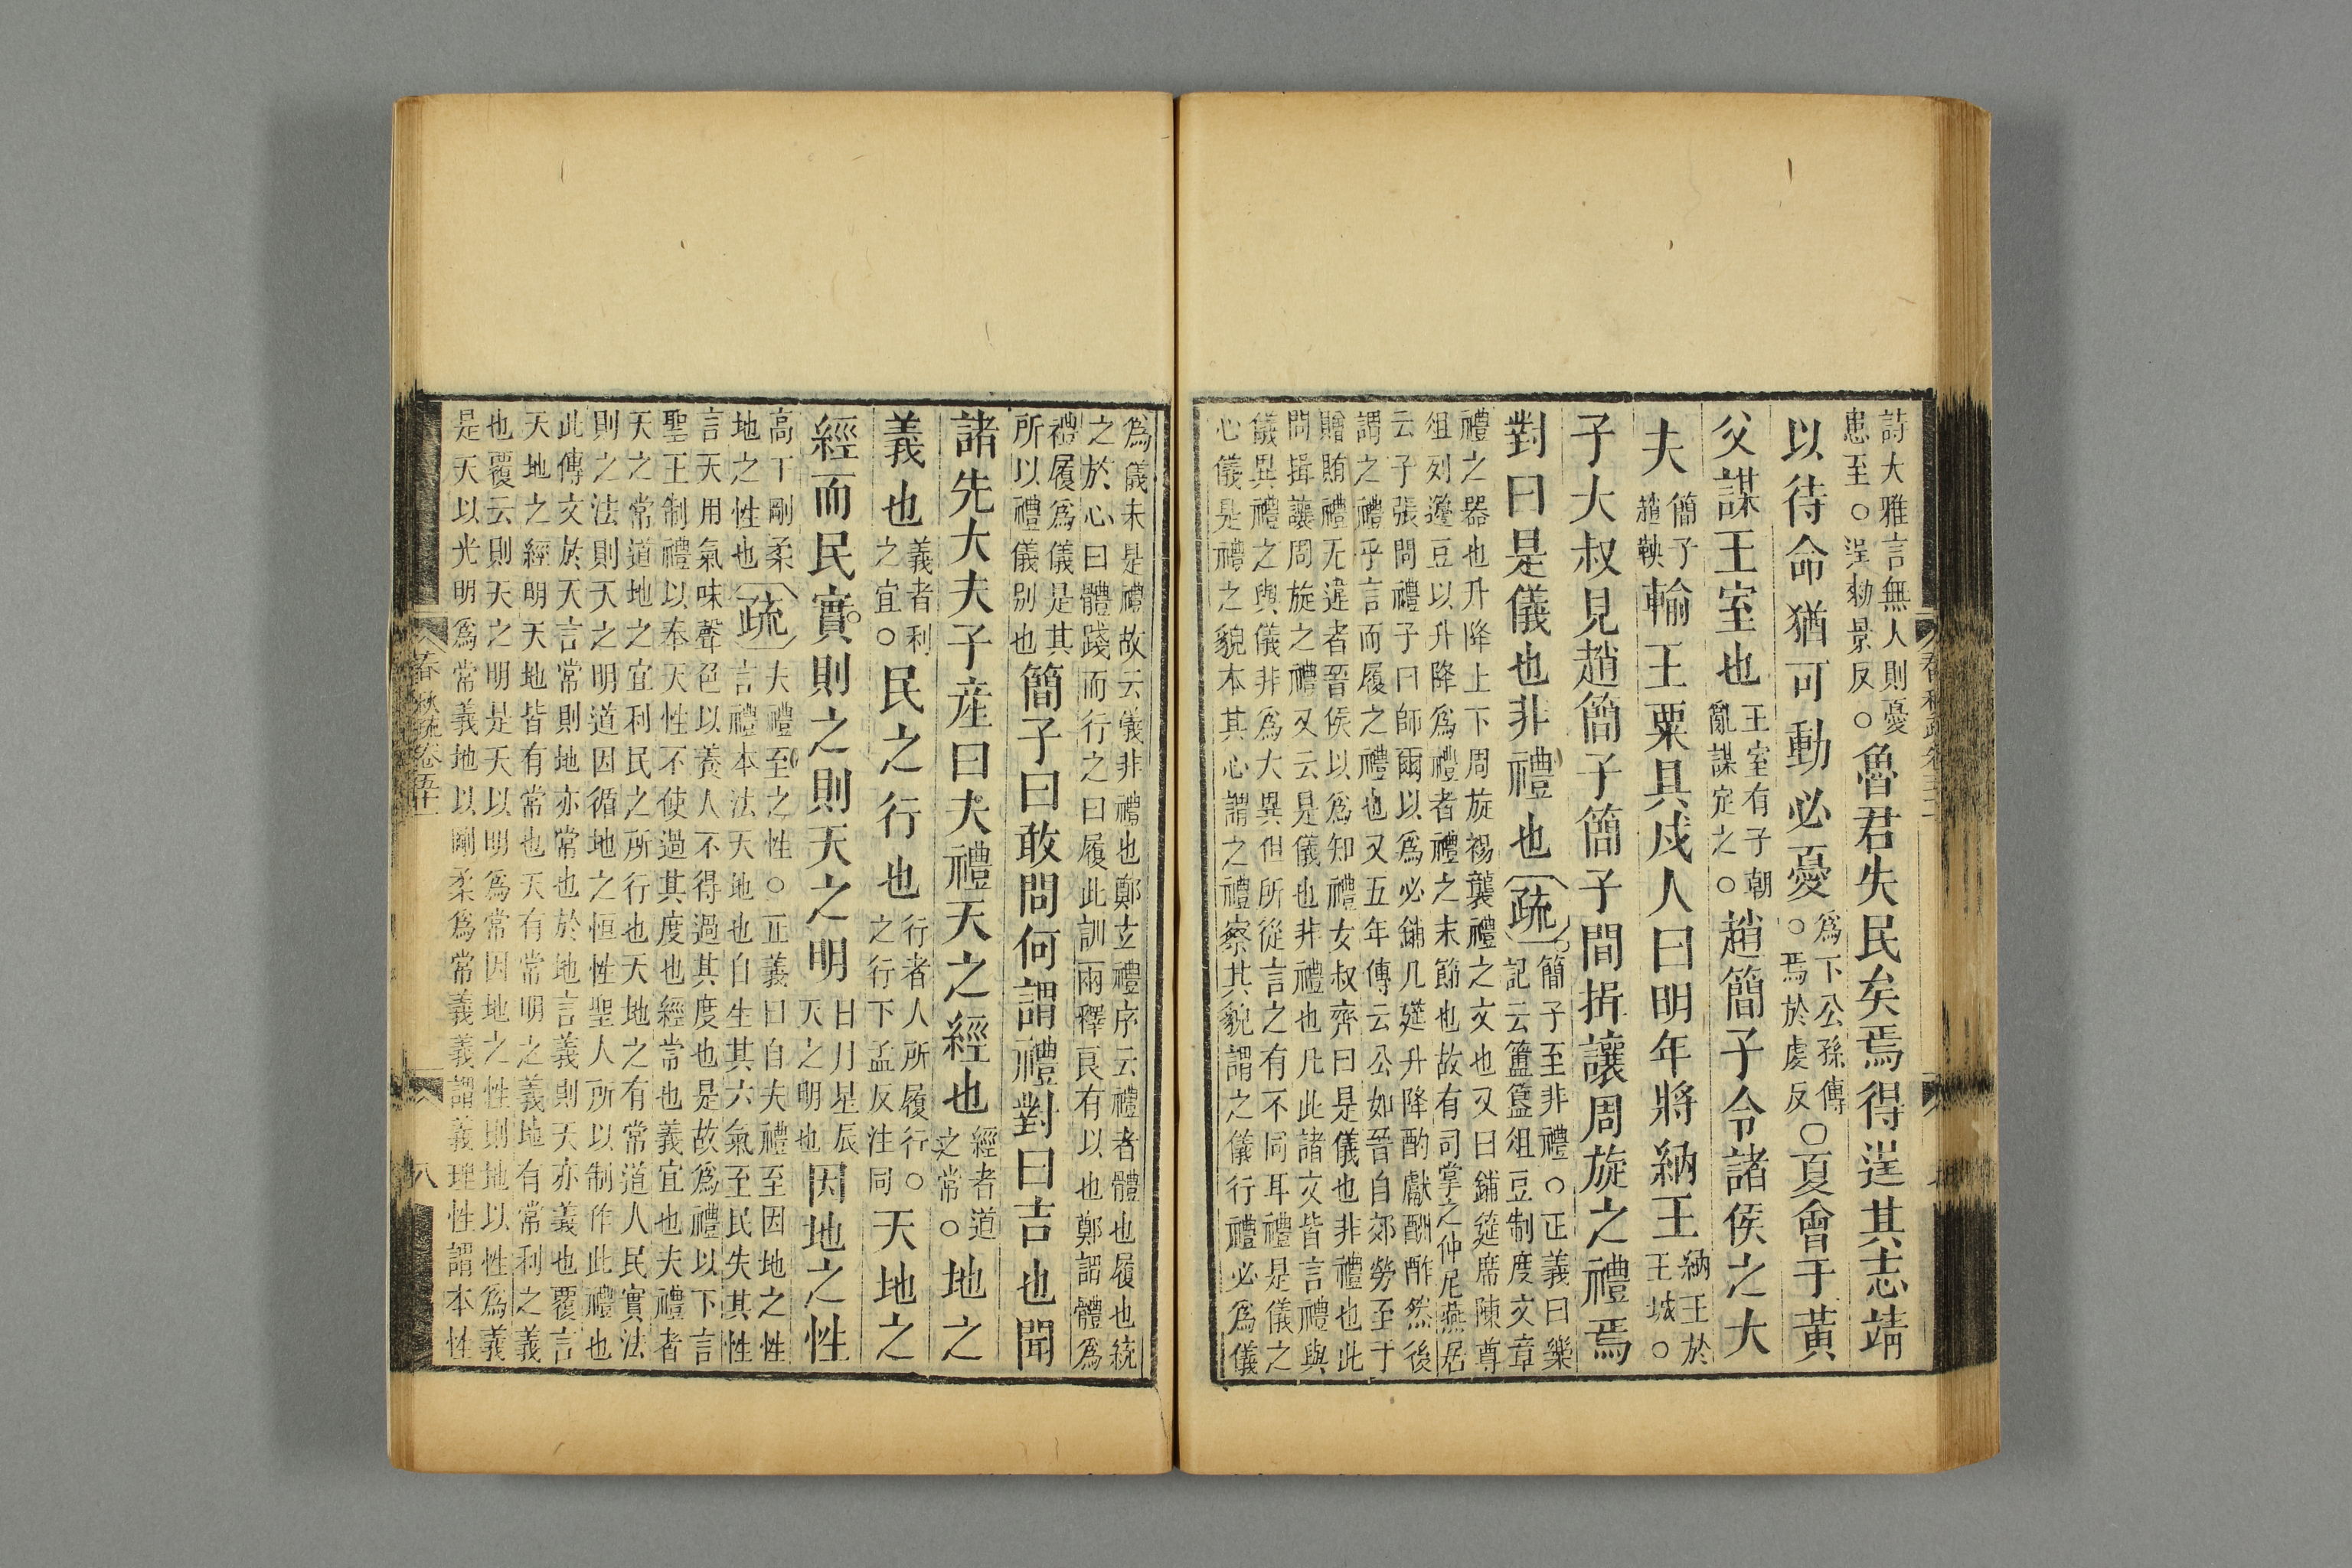 詩大雅言無人則憂患至○逞勑景反○魯君失民矣焉得逞其志靖
以待命猶可動必憂爲下公孫傳○焉於虔反○夏會于黃
父謀王室也王室有子朝亂謀定之○趙簡子令諸侯之大
夫簡子趙鞅輸王粟具戍人曰明年將納王納王於王城○
子大叔見趙簡子簡子問揖讓周旋之禮焉
對曰是儀也非禮也疏簡子至非禮○正義曰樂記云簠簋俎豆制度文章
禮之器也升降上下周旋裼襲禮之文也又曰鋪筵席陳尊
俎列籩豆以升降爲禮者禮之末節也故有司掌之仲尼燕居
云子張問禮子曰師爾以爲必鋪几筵升降酌獻酬酢然後
謂之禮乎言而履之禮也又五年傳云公如晉自郊勞至于
贈賄禮无違者晉侯以爲知禮女叔齊曰是儀也非禮也此
問揖讓周旋之禮又云是儀也非禮也凡此諸文皆言禮與
儀異禮之與儀非爲大異但所從言之有不同耳禮是儀之
心儀是禮之貌本其心謂之禮察其貌謂之儀行禮必爲儀
爲儀未是禮故云儀非禮也鄭玄禮序云禮者體也履也統
之於心曰體踐而行之曰履此訓兩釋良有以也鄭謂體爲
禮履爲儀是其所以禮儀別也簡子曰敢問何謂禮對曰吉也聞
諸先大夫子產曰夫禮天之經也經者道之常○地之
義也義者利之宜○民之行也行者人所履行○之行下孟反注同天地之
經而民實則之則天之明日月星辰天之明也因地之性
高下剛柔地之性也疏夫禮至之性○正義曰自夫禮至因地之性言禮本法天地也自生其六氣至民失其性
言天用氣味聲色以養人不得過其度也是故爲禮以下言
聖王制禮以奉天性不使過其度也經常也義宜也夫禮者
天之常道地之宜利民之所行也天地之有常道人民實法
則之法則天之明道因循地之恒性聖人所以制作此禮也
此傳文於天言常則地亦常也於地言義則天亦義也覆言
天地之經明天地皆有常也天有常明之義地有常利之義
也覆云則天之明是天以明爲常因地之性則地以性爲義
是天以光明爲常義地以剛柔爲常義義謂義理性謂本性
春秋疏卷五十一 八